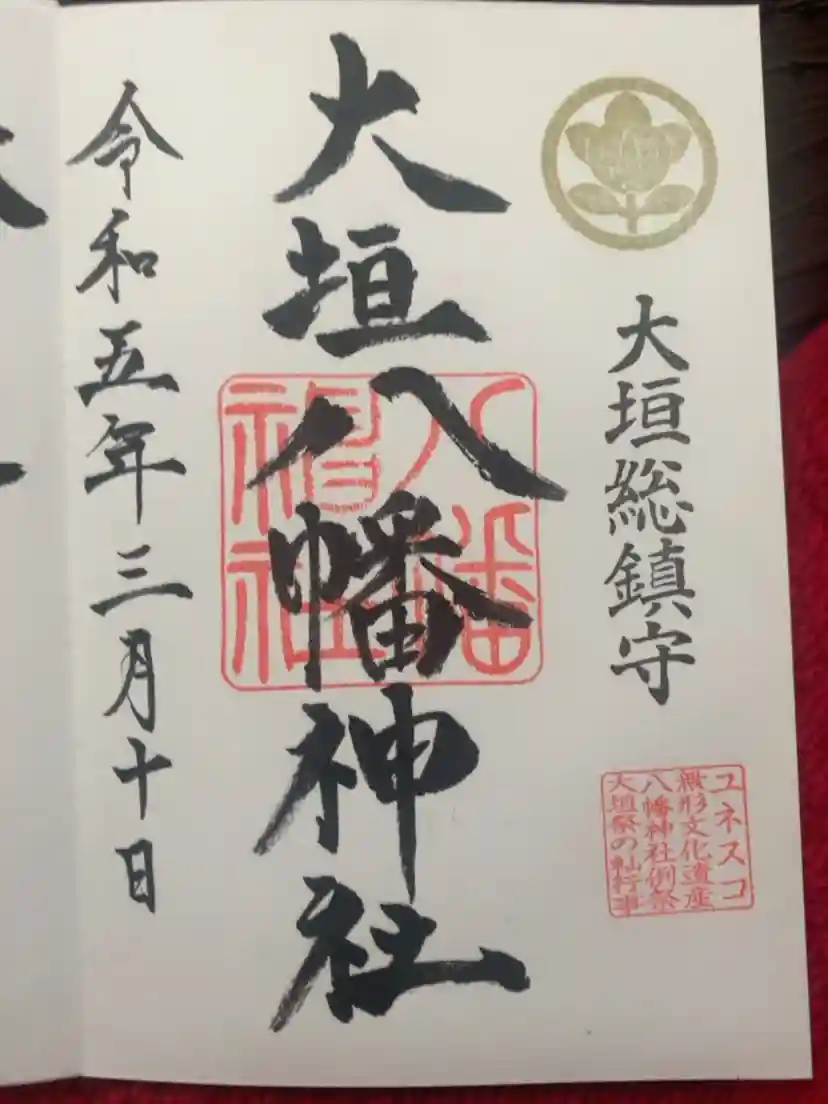 大垣総鎮守
ユネスコ
無形文化遺産
八幡神社例祭
大垣祭の軕行事
大垣八幡神社
八幡
神社
令和五年三月十日